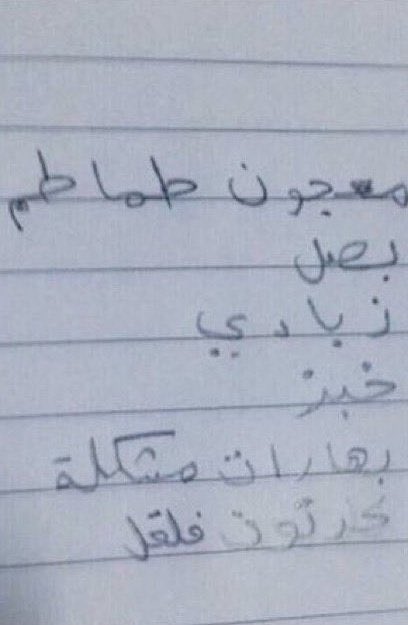 معجون طماطم
بصل
زبادي
خبز
بهارات مشكلة
كرتون فلفل